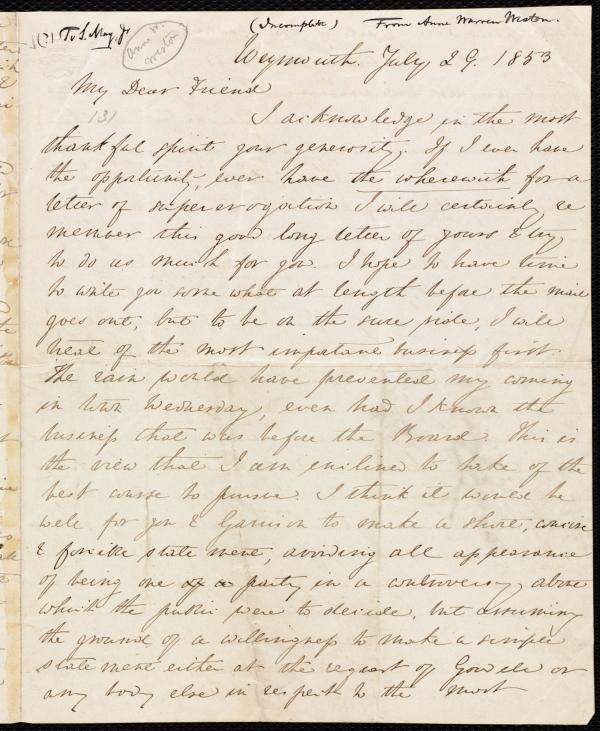 (?) To S. May, Jr
(Incomplete) From Anne Warren Weston.
Anne W. Weston
Weymouth. July 29. 1853
My Dear Friend
131
I acknowledge in the most
thankful spirit your generosity. If I ever have
the opportunity, ever have the wherewith for a
letter of supererogation I will certainly re
member this good long letter of yours & try
to do as much for you. I hope to have time
to write you some what at length before the mail
goes out, but to be on the sure side, I will
treat of the most important business first.
The rain would have prevented my coming
in town Wednesday, even had I known the
business that was before the Board. This is
the view that I am inclined to take of the
best course to pursue. I think it would be
well for you & Garrison to make a short, concise
& forcible state ment, avoiding all appearance
of being one of a party in a controversy about
which the public were to decide, but assuming
the ground of a willingness to make a simple
state ment either at the request of Gowell or
any body else in respect to the most